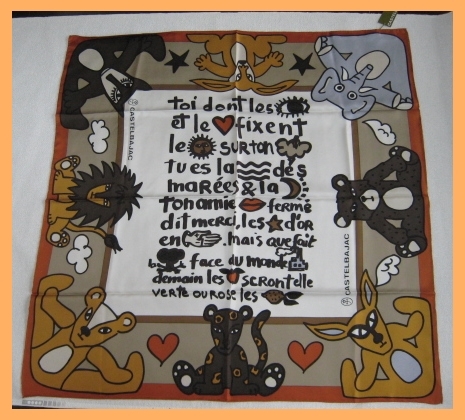 toi dont les
et le fixent
le sur ton
tu es la des
marées & la
ton amie fermé
dit merci, les d'or
en , mais que fait
face du monde
demain les seront elle
verte ou rose les
CASTELBAJAC
CASTELBAJAC